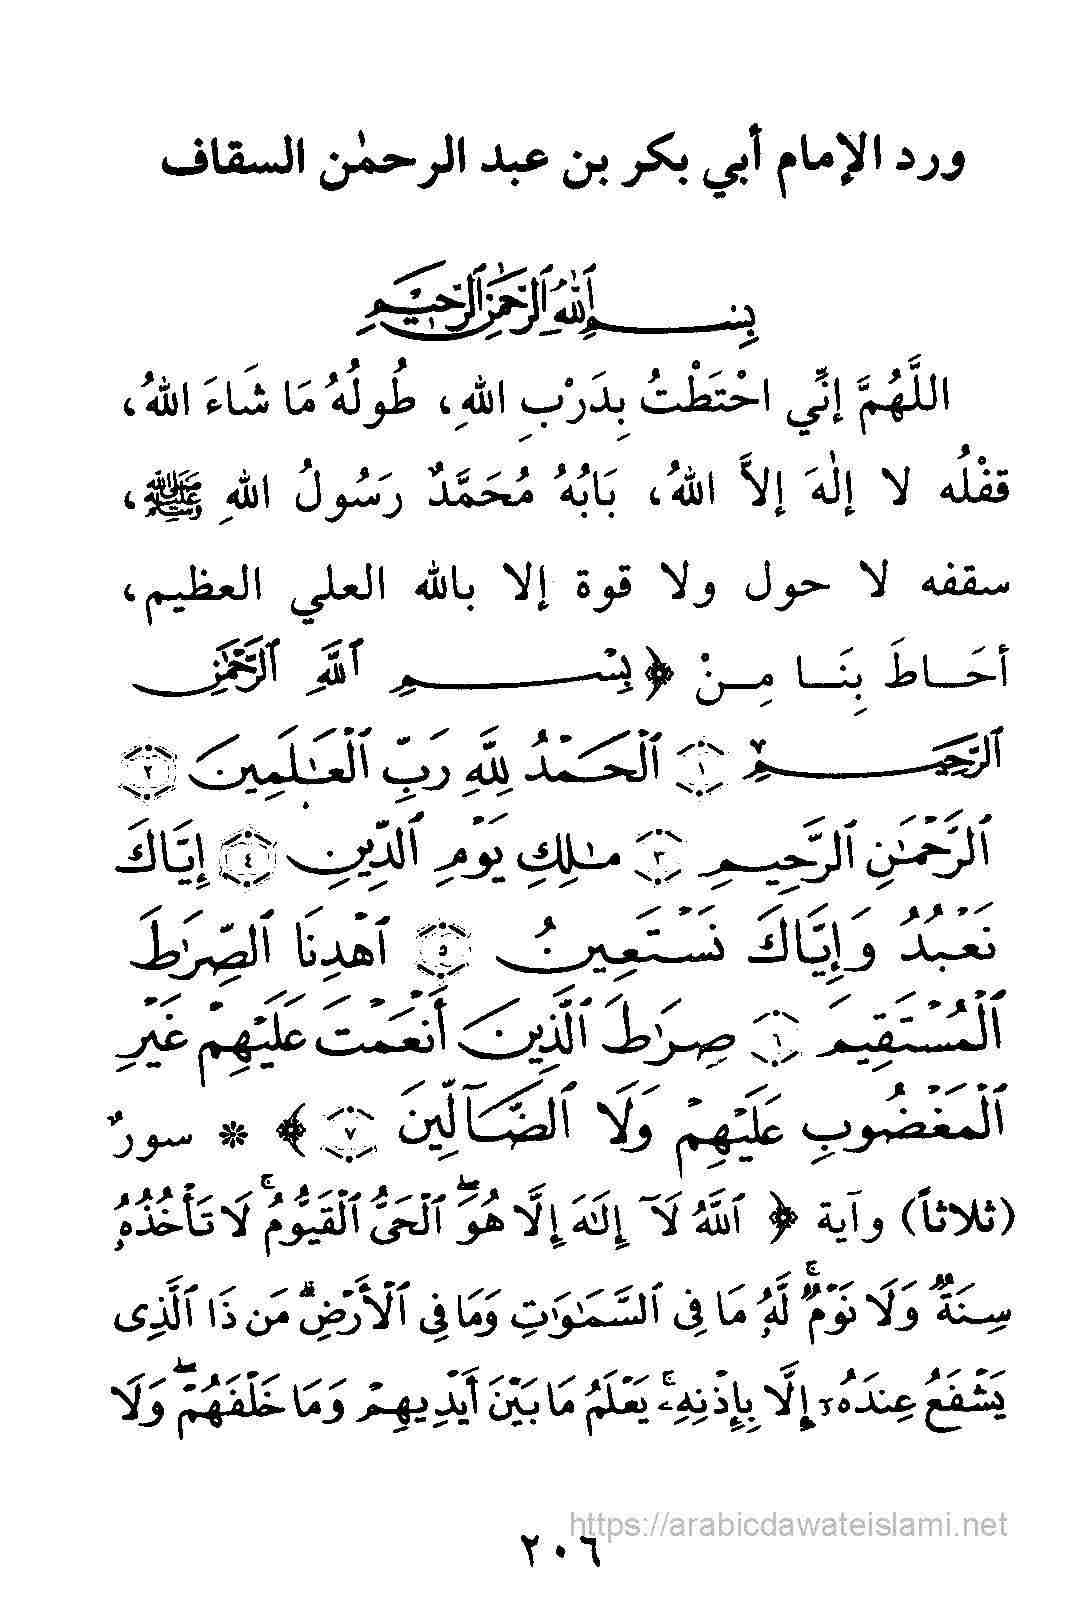 ورد الإمام أبي بكر بن عبد الرحمٰن السقاف
بِسْمِ اللهِ الرَّحْمٰنِ الرَّحِيْمِ
اللَّهُمَّ إِنِّي احْتَطْتُ بِدَرْبِ اللهِ، طُولُهُ مَا شَاءَ اللهُ،
قفْلُه لا إلٰهَ إلاَّ اللهُ، بَابُهُ مُحَمَّدٌ رَسُولُ اللهِ ﷺ،
سقفه لا حول ولا قوة إلا بالله العلي العظيم،
أحَاطَ بِنَا مِنْ ﴿ بِسْمِ ٱللَّهِ ٱلرَّحْمَٰنِ
ٱلرَّحِيمِ ١ ٱلْحَمْدُ لِلَّهِ رَبِّ ٱلْعَٰلَمِينَ ٢
ٱلرَّحْمَٰنِ ٱلرَّحِيمِ ٣ مَٰلِكِ يَوْمِ ٱلدِّينِ ٤ إِيَّاكَ
نَعْبُدُ وَإِيَّاكَ نَسْتَعِينُ ٥ ٱهْدِنَا ٱلصِّرَٰطَ
ٱلْمُسْتَقِيمَ ٦ صِرَٰطَ ٱلَّذِينَ أَنْعَمْتَ عَلَيْهِمْ غَيْرِ
ٱلْمَغْضُوبِ عَلَيْهِمْ وَلَا ٱلضَّآلِّينَ ٧ ﴾ * سورٌ
(ثلاثاً) وآية ﴿ ٱللَّهُ لَآ إِلَٰهَ إِلَّا هُوَ ۖ ٱلْحَىُّ ٱلْقَيُّومُ ۚ لَا تَأْخُذُهُۥ
سِنَةٌ وَلَا نَوْمٌ ۚ لَّهُۥ مَا فِى ٱلسَّمَٰوَٰتِ وَمَا فِى ٱلْأَرْضِ ۗ مَن ذَا ٱلَّذِى
يَشْفَعُ عِندَهُۥٓ إِلَّا بِإِذْنِهِۦ ۚ يَعْلَمُ مَا بَيْنَ أَيْدِيهِمْ وَمَا خَلْفَهُمْ ۖ وَلَا
https://arabicdawateislami.net
٢٠٦